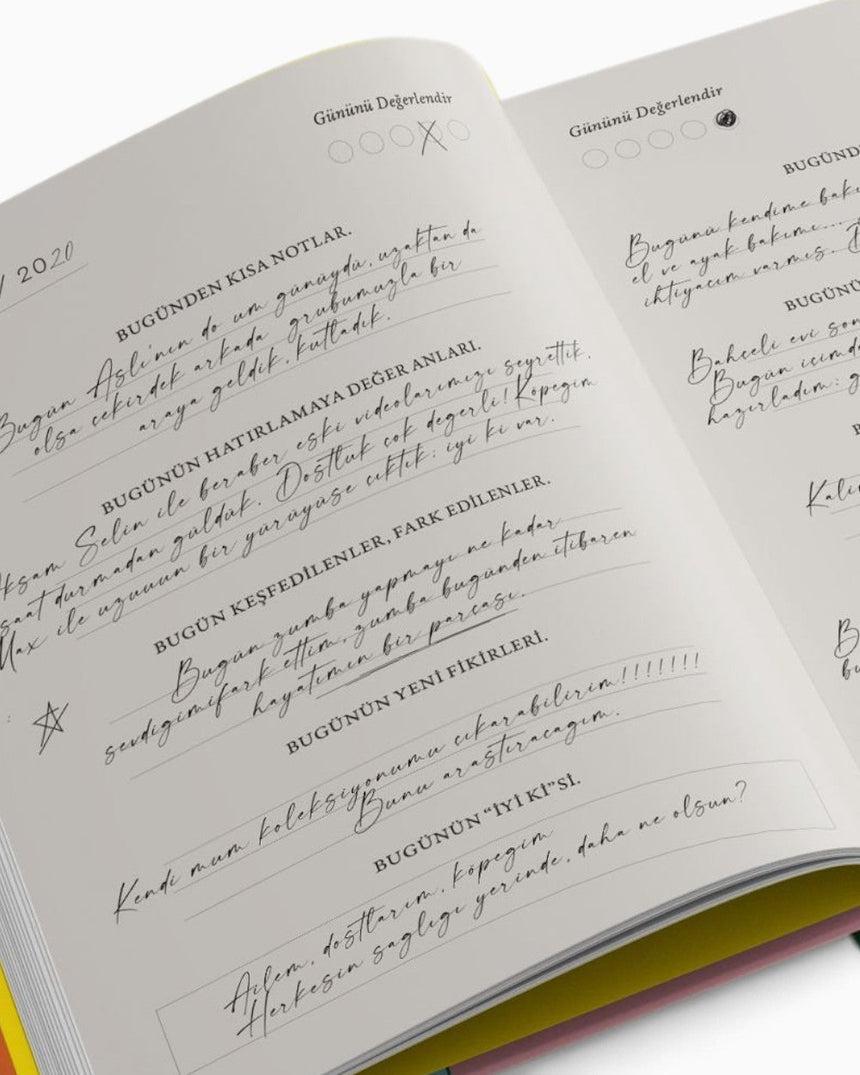 Gününü Değerlendir
/ 2020
BUGÜNDEN KISA NOTLAR.
Bugün Aslı'nın do um günüydü, uzaktan da
olsa cekirdek arkada grubumuzla bir
araya geldik, kutladık.
BUGÜNÜN HATIRLAMAYA DEĞER ANLARI.
Aksam Selin ile beraber eski videolarımızı seyrettik.
saat durmadan güldük. Dostluk cok degerli! Köpegim
Max ile uzuuun bir yürüyüse cıktık: iyi ki var.
BUGÜN KEŞFEDİLENLER, FARK EDİLENLER.
Bugün zumba yapmayı ne kadar
sevdigimi fark ettim, zumba bugünden itibaren
hayatımın bir parcası.
BUGÜNÜN YENİ FİKİRLERİ.
Kendi mum koleksiyonumu cıkarabilirim!!!!!!!
Bunu arastıracagım.
BUGÜNÜN "İYİ Kİ"Sİ.
Ailem, dostlarım, köpegim
Herkesin saglıgı yerinde, daha ne olsun?
Gününü Değerlendir
BUGÜND
Bugünü kendime bakı
el ve ayak bakımı...
ihtiyacım varmıs. D
BUGÜNÜ
Bahceli evi son
Bugün icimde
hazırladım: g
B
Kalin
B
bu